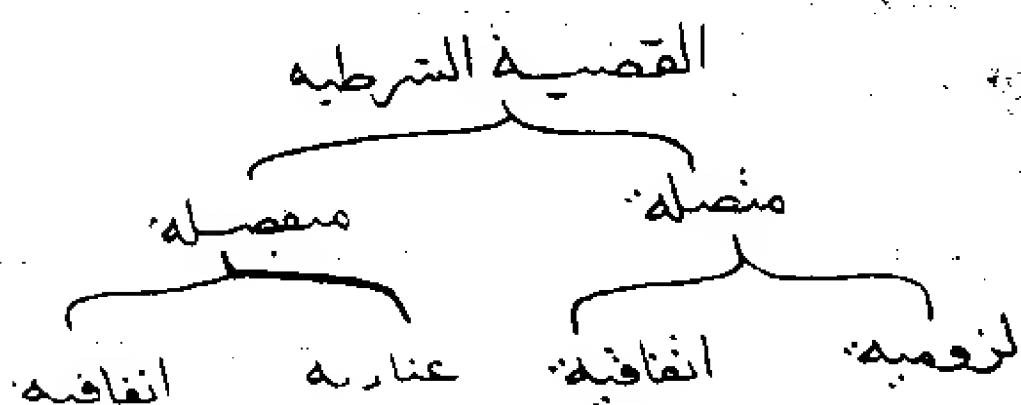 القضية الشرطيه
متصلة منفصلة
لزومية اتفاقية عنادية اتفاقية